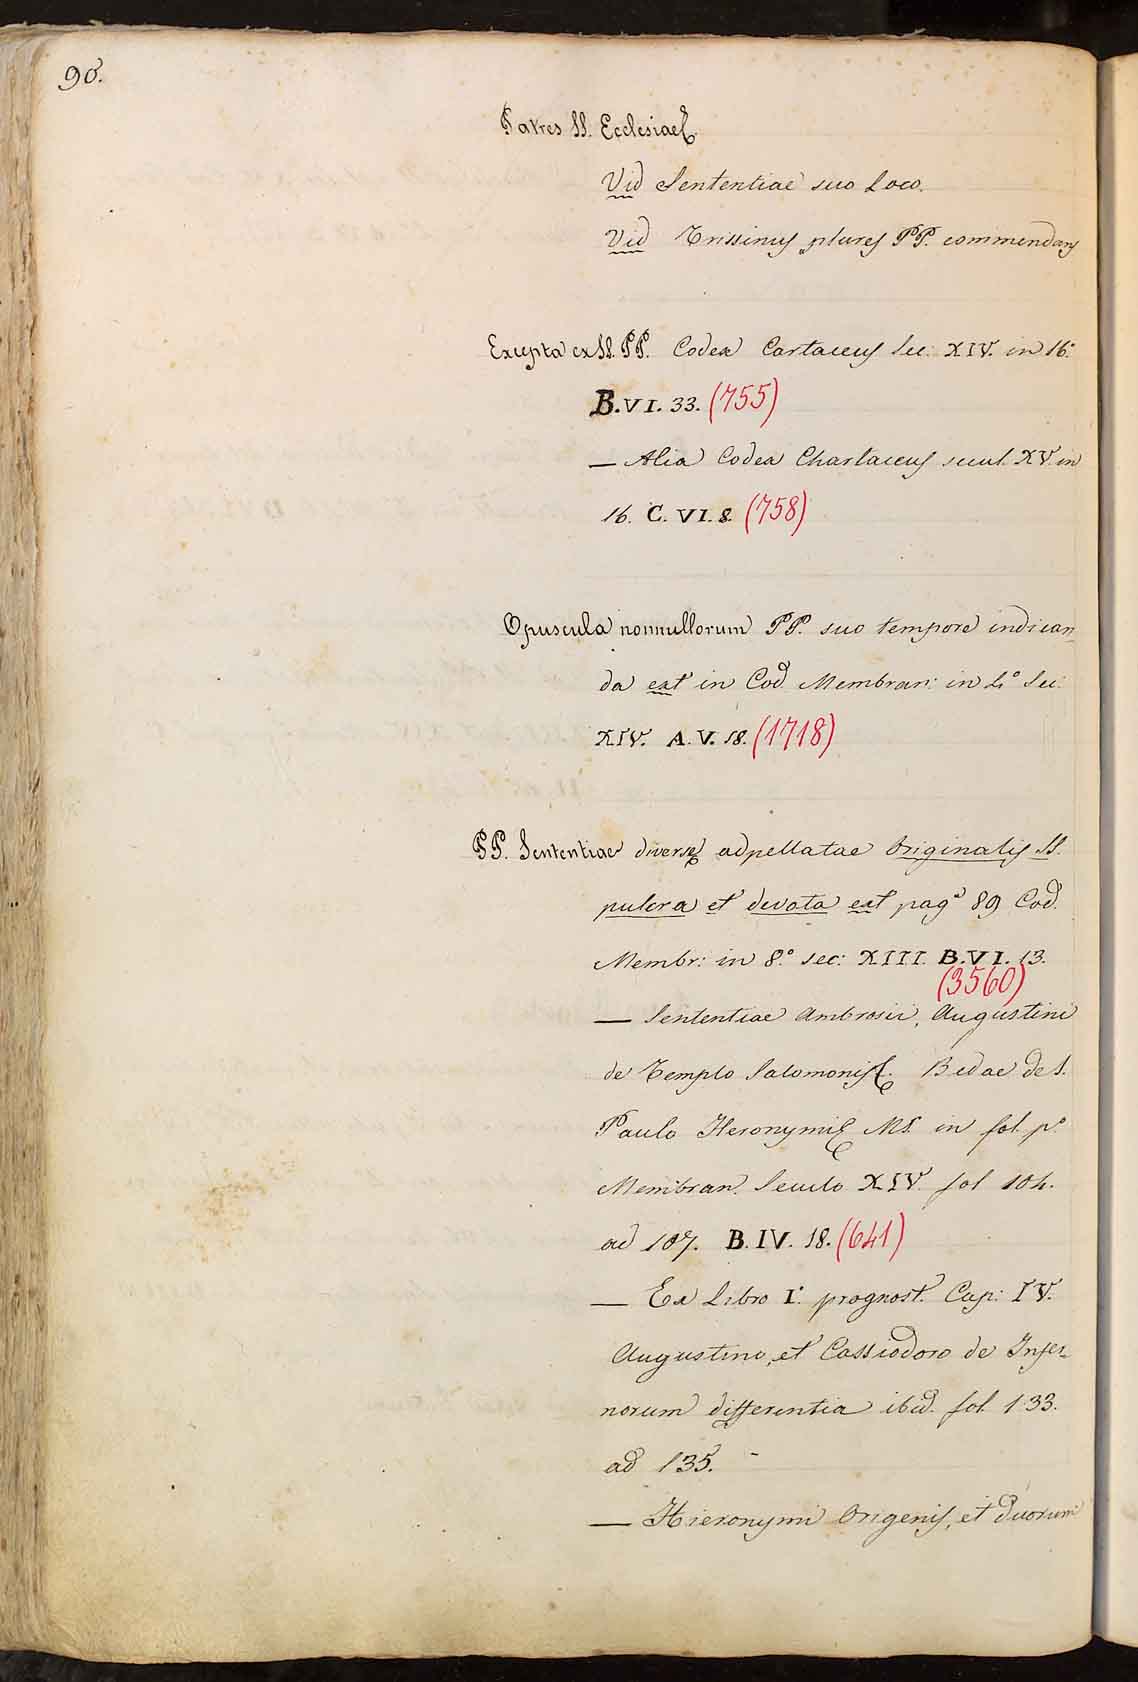 90.
Patres SS. Ecclesiae
Vid Sententiae suo Loco.
Vid Trissinus plures PP. commendans
Excepta ex SS. PP. Codex Cartaceus Sec: XIV. in 16.°
B. VI. 33. (755)
— Alia Codex Chartaceus secul. XV. in
16. C. VI. 8. (758)
Opuscula nonnullorum PP. suo tempore indican
da ext in Cod. Membran: in 4.° Sec:
XIV. A. V. 18. (1718)
PP. Sententiae diversę adpellatae Originalis SS.
pulcra et devota ext pag.ª 89 Cod.
Membr: in 8.° sec: XIII. B. VI. 13.
(3560)
— Sententiae Ambrosii, Augustini
de Templo Salomonis. Bedae de S.
Paulo Heronymi MS. in fol. p.°
Membran. Seculo XIV. fol 104.
ad 107. B. IV. 18. (641)
— Ex Libro I.° prognost. Cap: IV.
Augustino, et Cassiodoro de Infer-
norum differentia ibid. fol. 133.
ad 135.
— Hieronymi Origenis, et duorum